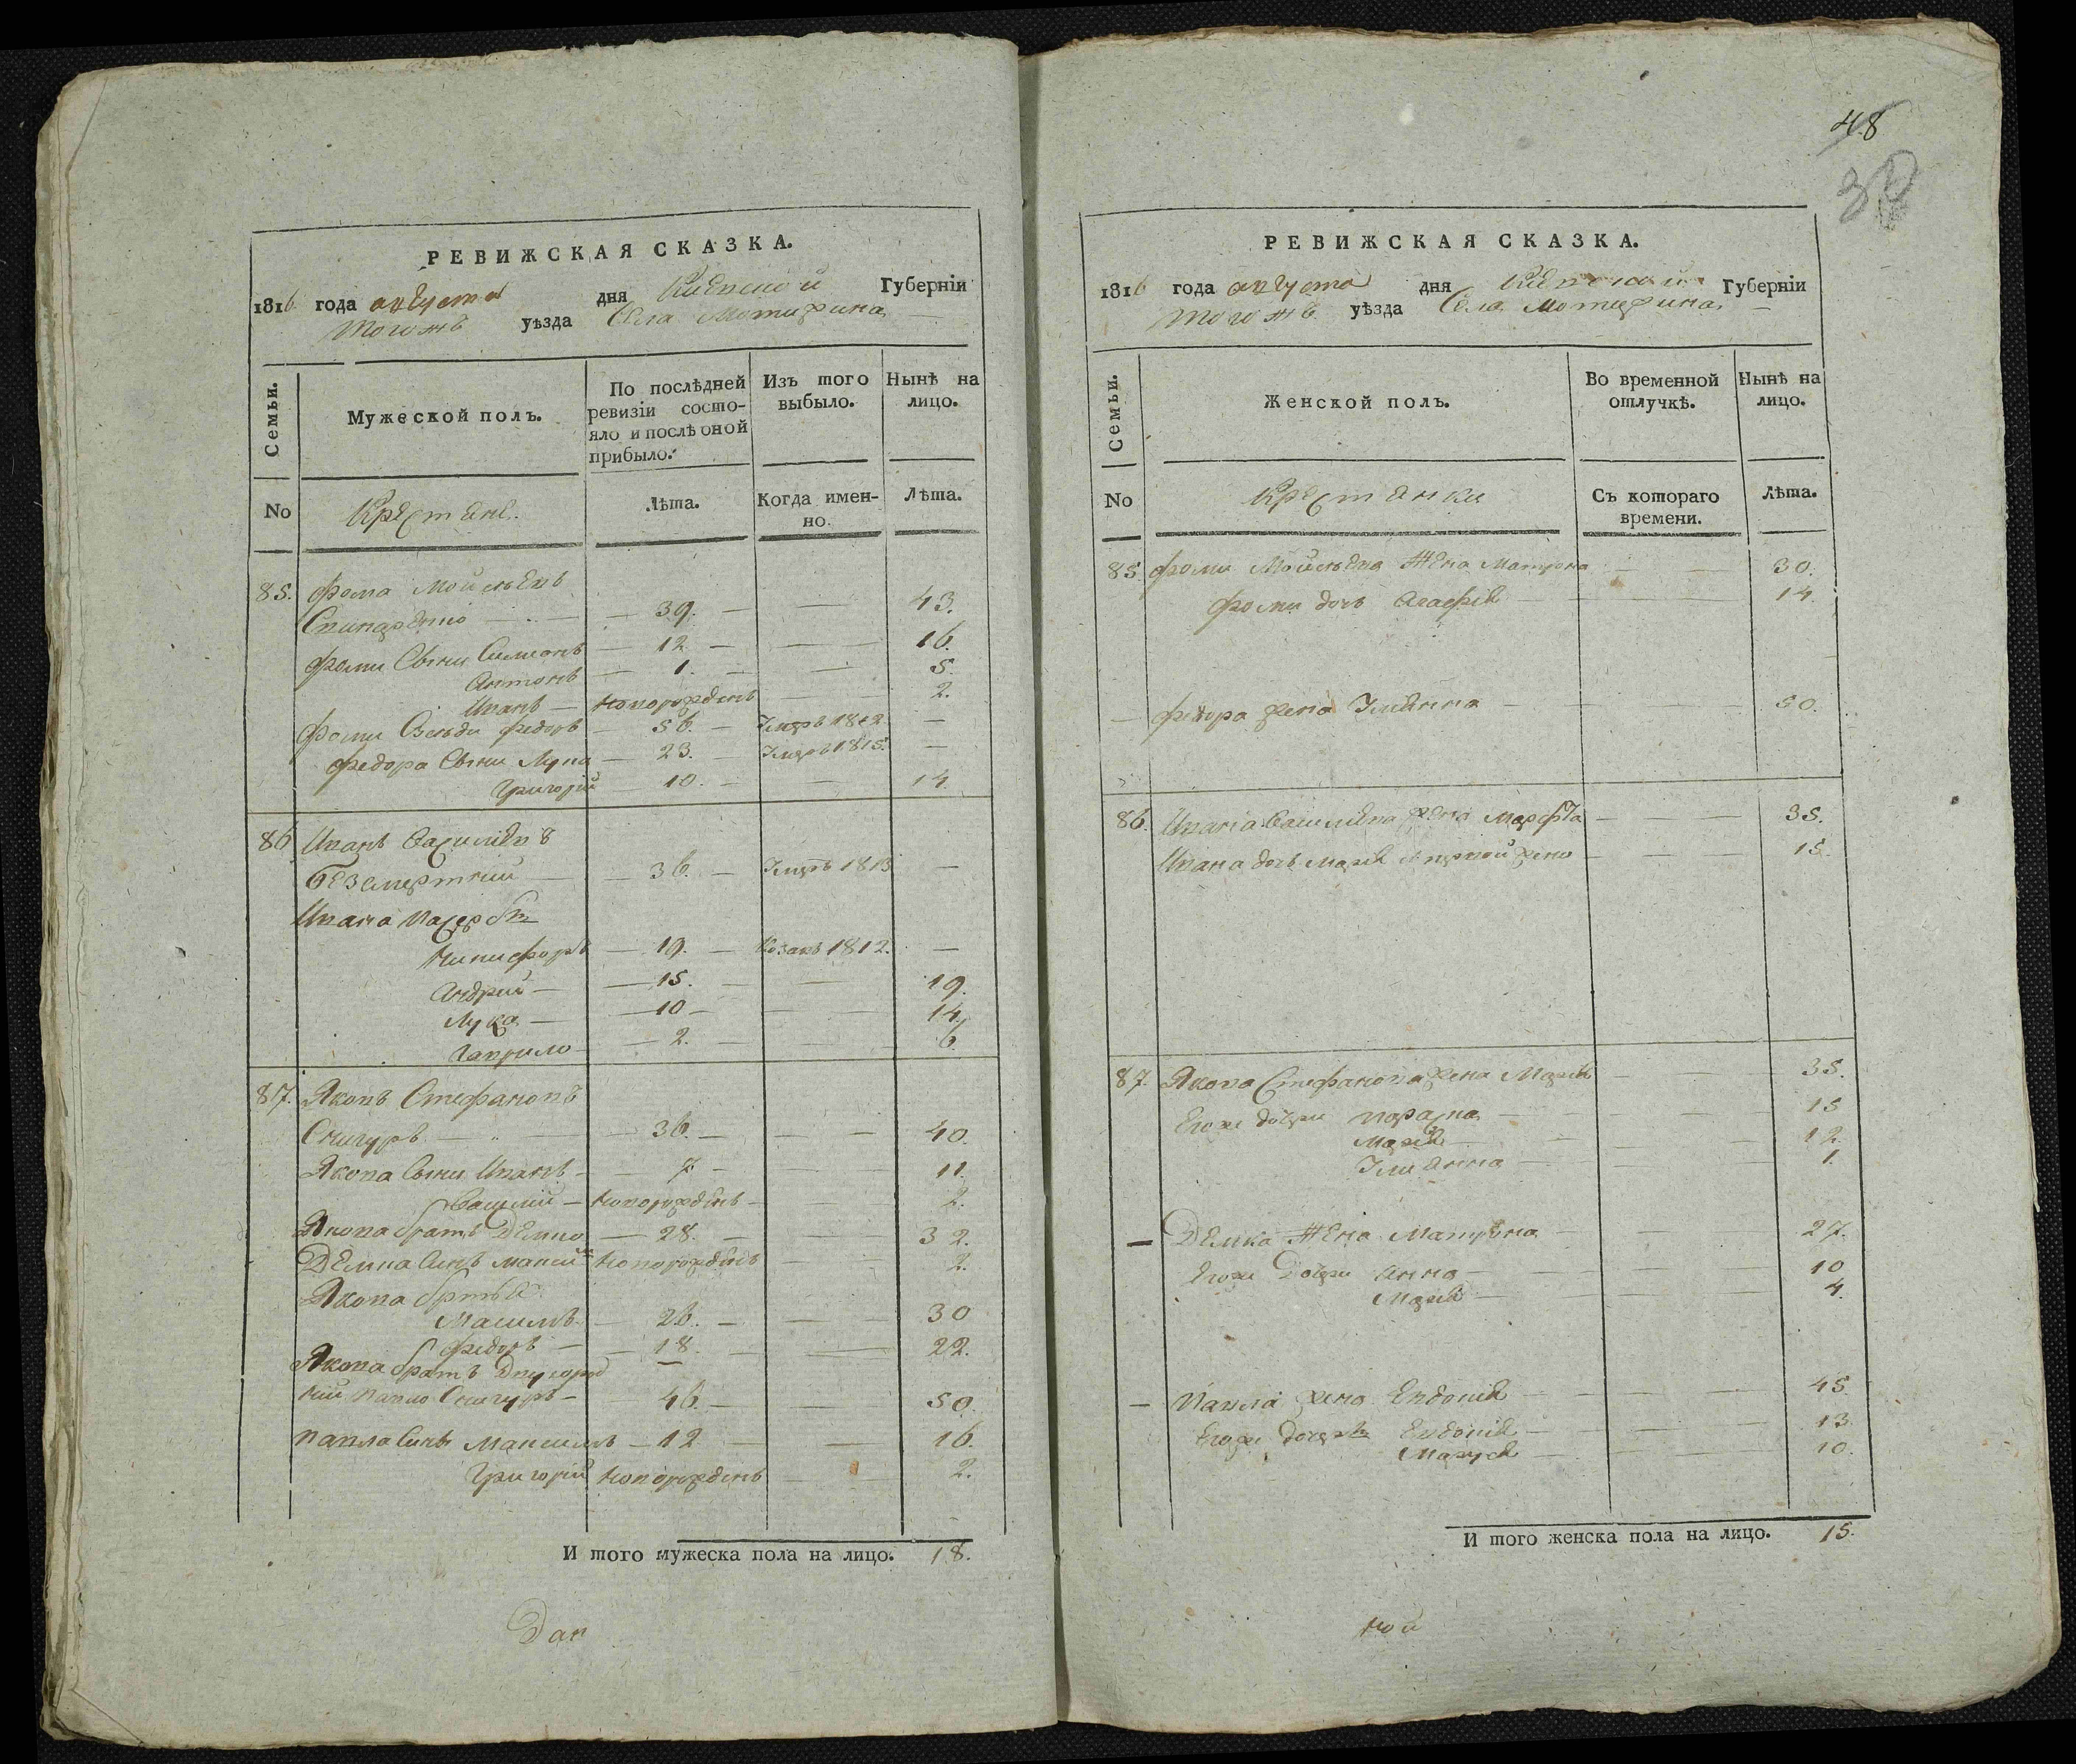 РЕВИЖСКАЯ СКАЗКА.
1816 года августа дня Киевской Губерніи
тогожъ уѣзда Села Мотижина
Семьи.
Мужеской полъ.
По послѣдней ревизіи состо-
яло и послѣ оной
прибыло.
Изъ того выбыло.
Нынѣ на лицо.
No
Крестяне.
Лѣта.
Когда имен-
но.
Лѣта.
85. Фома Мойсѣевъ
— 39. — — 43.
Фоми Сыни Симионъ — 12 — — 16.
Антонъ — 1. — — 5.
Иванъ — новорожденъ — 2.
Фоми Федоръ — 56. — Умеръ 1812 —
Федора Сыни Лука — 23. — Умеръ 1815. —
Григорій 10. — — 14.
86 Иванъ Василіевъ
Безсмертній — 36. — Умеръ 1813 —
Ивана пасерб
Никифоръ — 19. — Козакъ 1812. —
Андрий — 15. — — 19.
Лука — 10 — — 14.
Гаврило — 2. — — 6.
87. Яковъ Стефановъ
Снигуръ — 36. — — 40.
Якова Сыни Иванъ — 7 — — 11.
Василій — новорожденъ — 2.
Якова братъ Демко — 28. — — 32.
Демка Синъ новорожденъ — 2.
Якова братья
Максимъ — 26. — — 30
Федоръ — 18. — — 22.
Якова братъ Двуюрод
ній Павло Снигуръ — 46. — — 50.
Павла Синъ Максимъ — 12 — — 16.
Григорій новорожденъ — 2.
И того мужеска пола на лицо. 18.
Дан
48
РЕВИЖСКАЯ СКАЗКА.
1816 года августа дня Киевской Губерніи
тогожъ уѣзда Села Мотижина
Семьи.
Женской полъ.
Во временной отлучкѣ.
Нынѣ на лицо.
No
Крестянки
Съ котораго
времени.
Лѣта.
85 Фоми Мойсѣева Жена Матрона — 30.
Фоми дочь Агафія — 14.
— Федора жена Улианна — 50.
86. Ивана Василіева жена Марфа — 35.
Ивана дочь Марія первой жени — 15.
87. Якова Стефанова жена Марія — 35.
Егоже дочери Параска — 15
Марія — 12.
Улианна — 1.
— Демка Жена Матрона — 27.
Егоже Дочери Анна — 10
Марія — 4.
— Павла жена Евдокія — 45.
Егоже дочери Евдокія — 13
— 10.
И того женска пола на лицо. 15.
ной